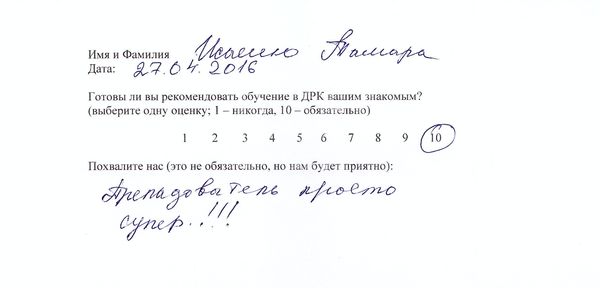 Имя и Фамилия Тамара
Дата: 27.04.2016
Готовы ли вы рекомендовать обучение в ДРК вашим знакомым?
(выберите одну оценку; 1 – никогда, 10 – обязательно)
1 2 3 4 5 6 7 8 9 10
Похвалите нас (это не обязательно, но нам будет приятно):
Преподователь просто
супер..!!!